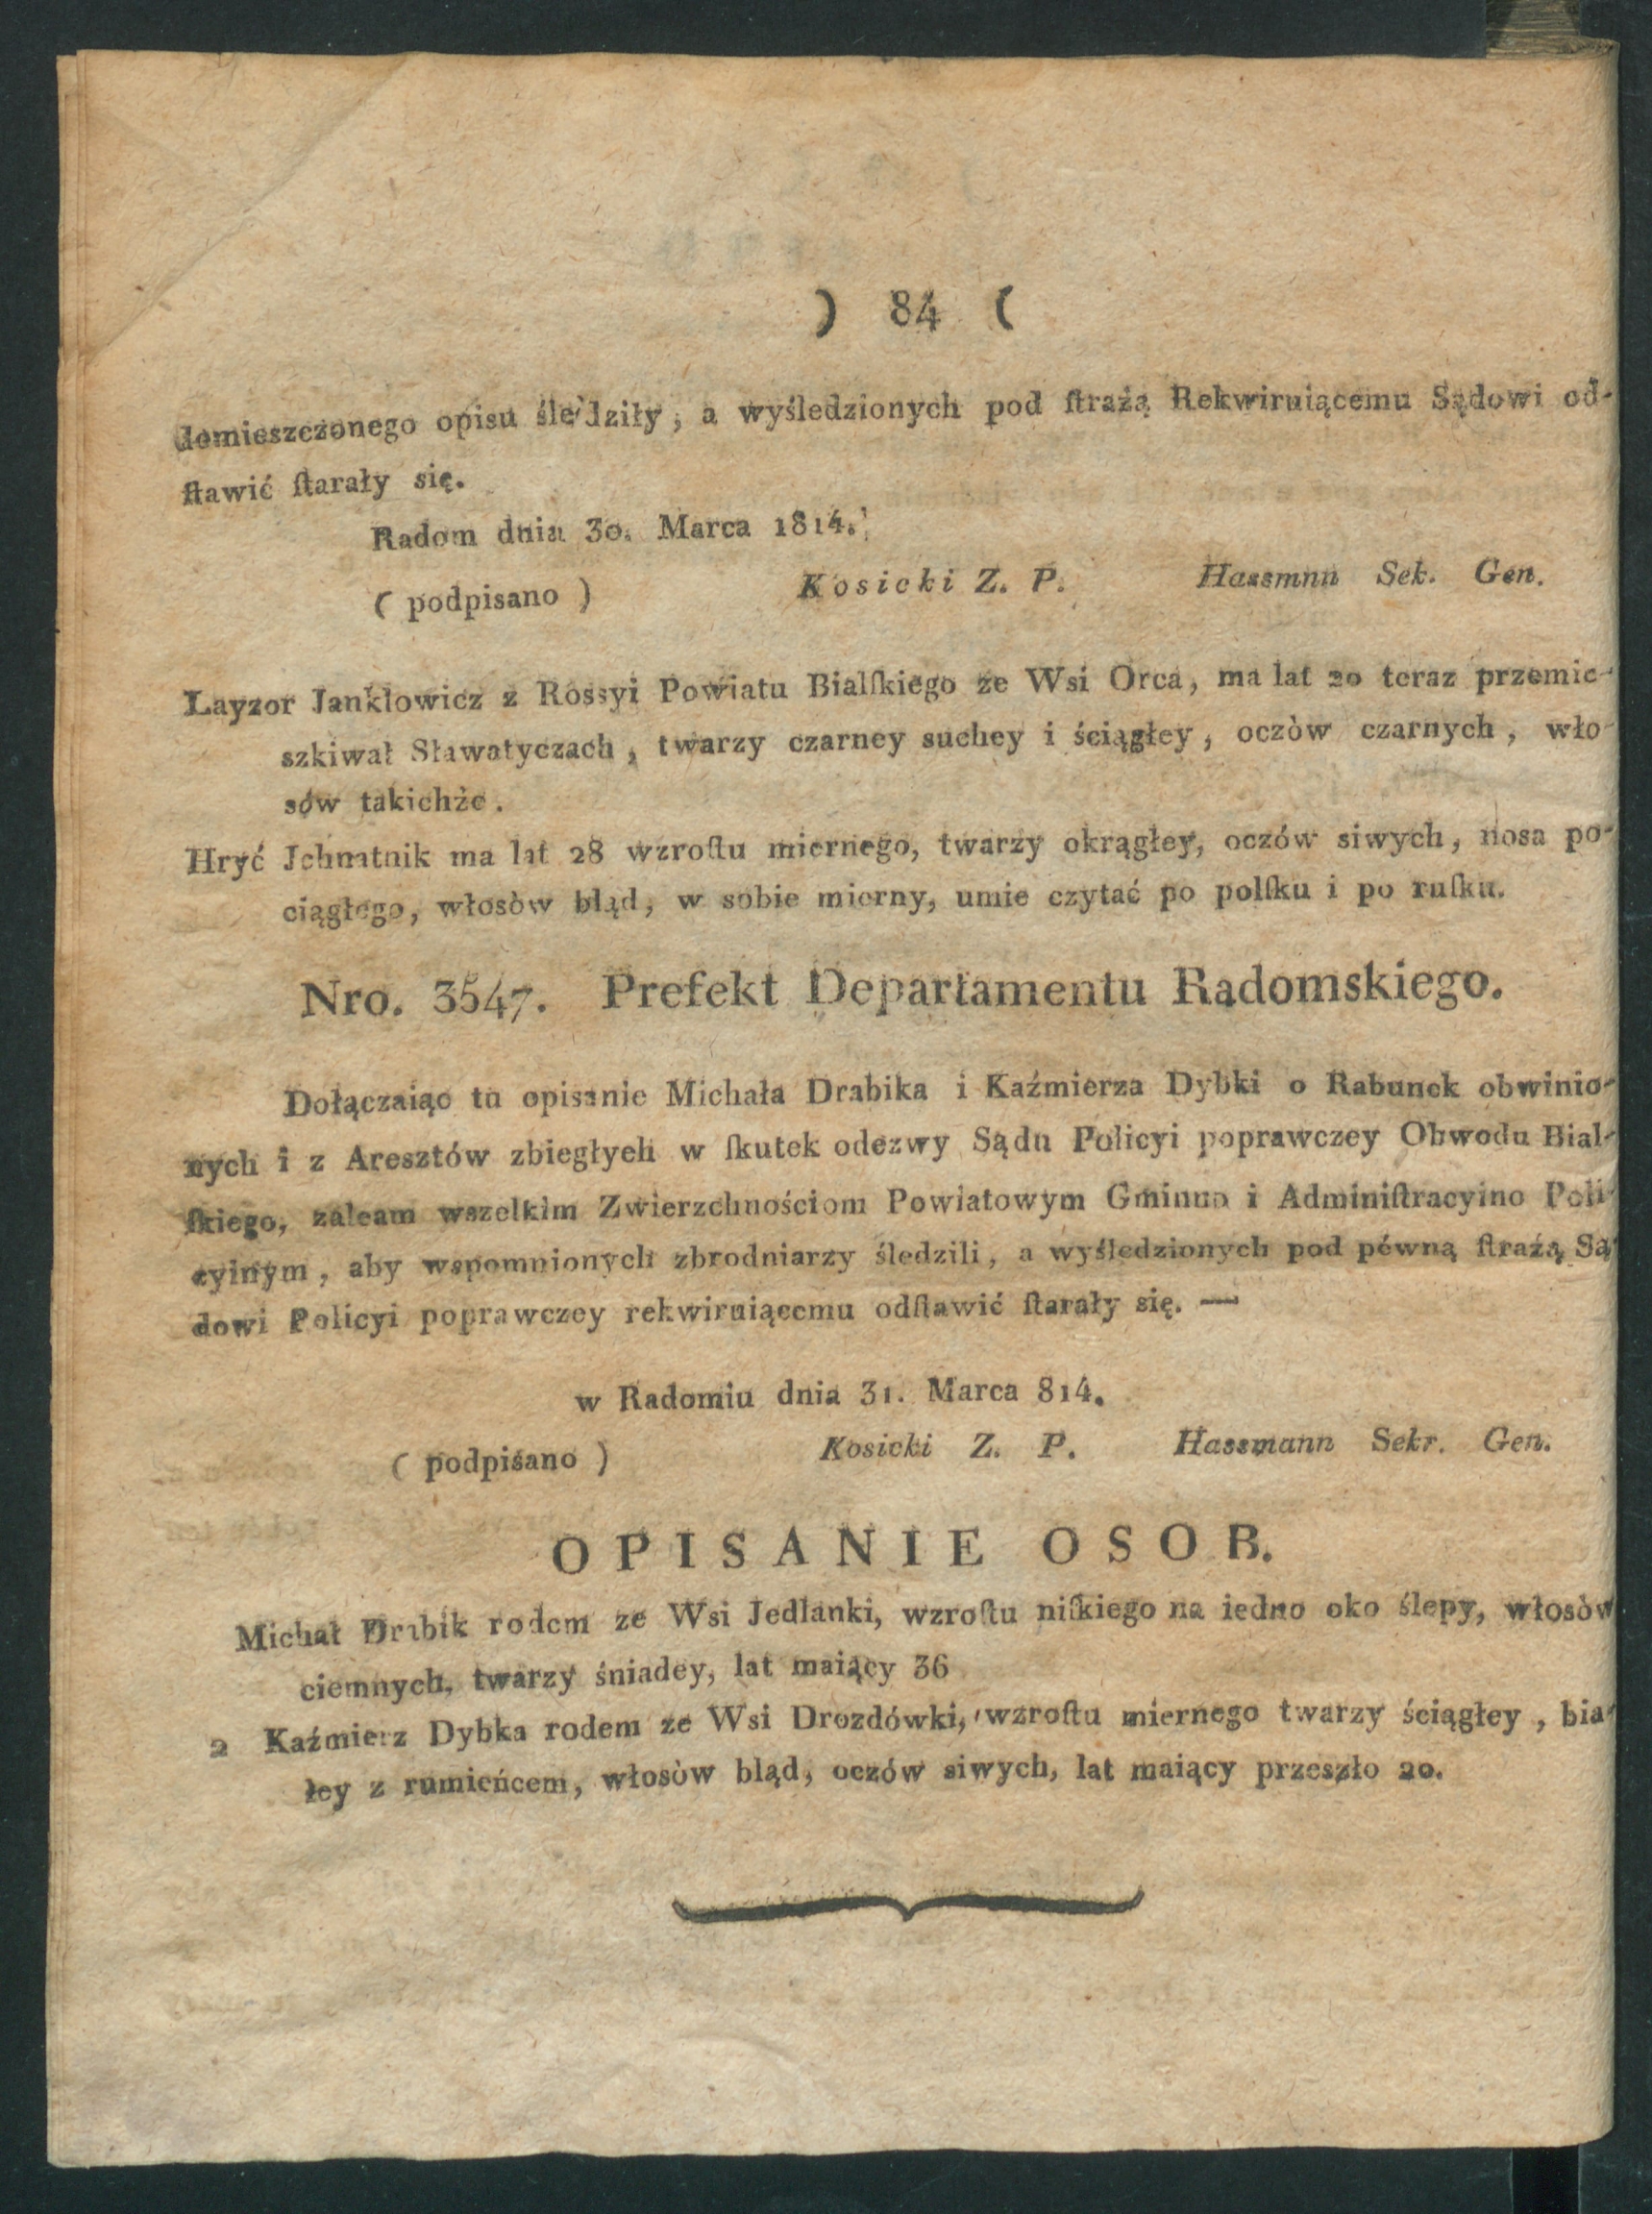 ) 84 (
domieszczonego opisu śledziły, a wyśledzionych pod ſtrażą Rekwiruiącemu Sądowi od-
ſtawić ſtarały się.
Radom dnia 30. Marca 1814.
( podpisano ) Kosicki Z. P. Hassmnn Sek. Gen.
Layzor Jankłowicz z Rossyi Powiatu Bialſkiego ze Wsi Orca, ma lat 20 teraz przemie-
szkiwał Sławatyczach, twarzy czarney suchey i ściągłey, oczòw czarnych, wło-
sów takichże.
Hryć Jchnatnik ma lat 28 wzroſtu miernego, twarzy okrągłey, oczów siwych, nosa po-
ciągłego, włosòw bląd, w sobie mierny, umie czytać po polſku i po ruſku.
Nro. 3547. Prefekt Departamentu Radomskiego.
Dołączaiąc tu opisanie Michała Drabika i Kaźmierza Dybki o Rabunek obwinio-
nych i z Aresztów zbiegłych w ſkutek odezwy Sądu Policyi poprawczey Obwodu Bial-
ſkiego, zalcam wszelkim Zwierzchnościom Powiatowym Gminno i Adminiſtracyino Poli-
cyinym, aby wspomnionych zbrodniarzy śledzili, a wyśledzionych pod péwną ſtrażą Są-
dowi Policyi poprawczey rekwiruiącemu odſtawić ſtarały się. —
w Radomiu dnia 31. Marca 814.
( podpisano ) Kosicki Z. P. Hassmann Sekr. Gen.
OPISANIE OSOB.
Michał Drabik rodem ze Wsi Jedlanki, wzroſtu niſkiego na iedno oko ślepy, włosòw
ciemnych, twarzy śniadey, lat maiący 36
2 Kaźmierz Dybka rodem ze Wsi Drozdówki, wzroſtu miernego twarzy ściągłey, bia-
łey z rumieńcem, włosòw bląd, oczów siwych, lat maiący przeszło 20.